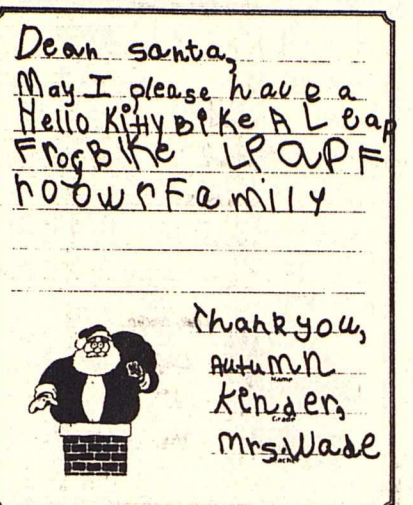 Dear santa,
May I please have a
Hello Kitty Bike A Leap
Frog Bike LPaPF
rodwrFamily
Thank you,
Autumn
Name
Kender,
Grade
Mrs. Wade